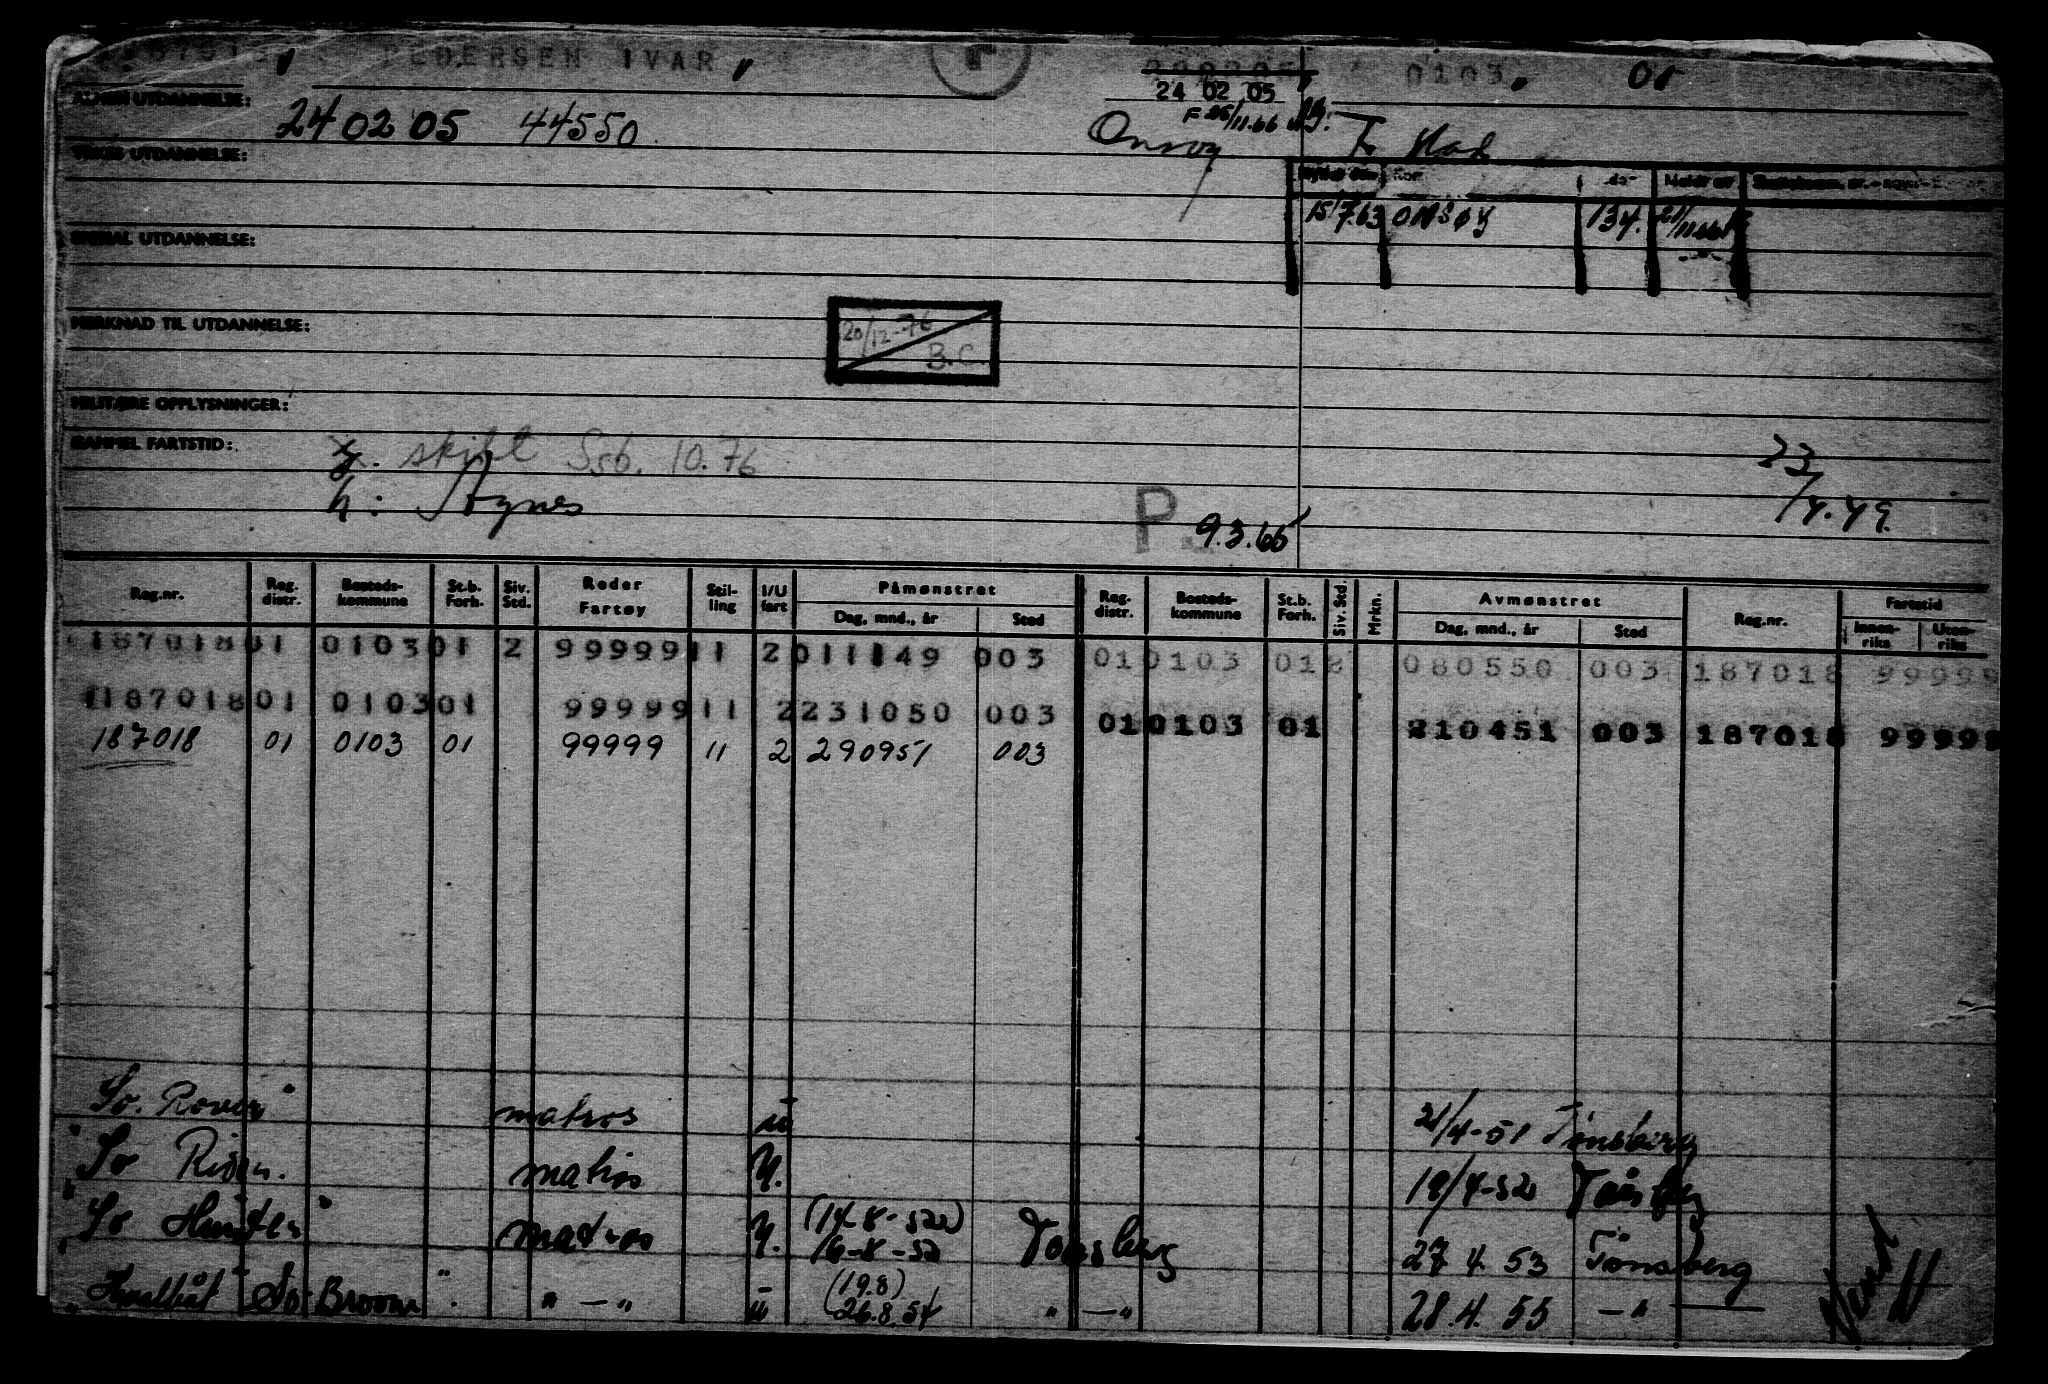 PEDERSEN IVAR 0103 01
24 02 05
ALMEN UTDANNELSE:
240205 44550
F 25/11.66
Onsøy
YRKES UTDANNELSE:
15/7.63 ONSØY 134.
SPESIAL UTDANNELSE:
MERKNAD TIL UTDANNELSE:
20/12-76
B.C.
MILITÆRE OPPLYSNINGER:
GAMMEL FARTSTID:
skift Ssb. 10.76
h: Agnes
P. 9.3.65
23/4.49.
Reg.nr. Reg. distr. Bosteds-kommune St.b. Forh. Siv. Std. Reder Fartøy Stil-ling I/U fart Påmønstret Dag, mnd., år Sted Reg. distr. Bosteds-kommune St.b. Forh. Siv. Std. Mrkn. Avmønstret Dag, mnd., år Sted Reg.nr. Fartstid Innen-riks Uten-riks
187018 01 0103 01 2 99999 11 2 011149 003 01 0103 01 080550 003 187018 99999
187018 01 0103 01 99999 11 2 231050 003 01 0103 01 210451 003 187018 99999
187018 01 0103 01 99999 11 2 290951 003
So. Rover" matros ü 21/4-51 Tønsberg
" So matros U. 19/4-52 Tønsberg
" So Hunter" matros U. (14-8-52) 16-8-52 Tønsberg 27.4.53 Tønsberg
" Hvalbåt "So Broom". " — " ü (19.8) 26.8.54 " — " 28.4.55 — " —